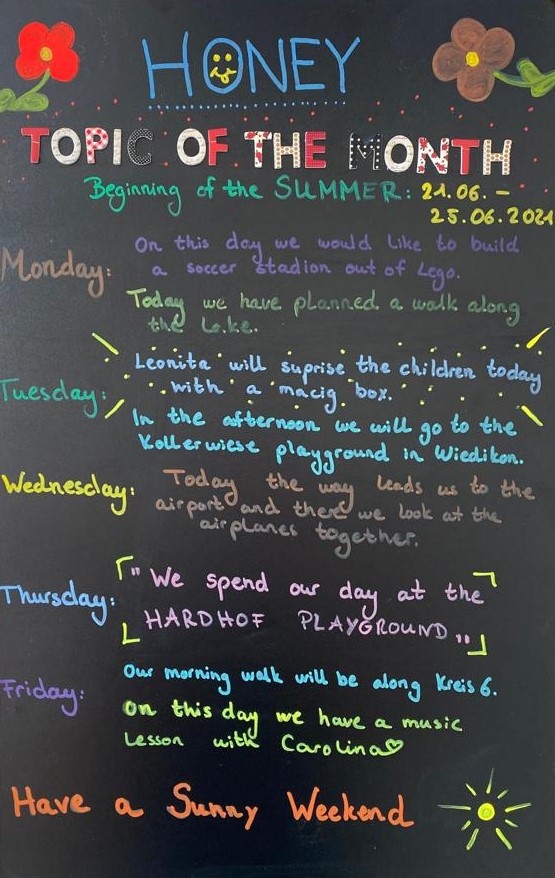 HONEY
TOPIC OF THE MONTH
Beginning of the SUMMER: 21.06. -
25.06.2021
Monday: On this day we would like to build
a soccer stadion out of Lego.
Today we have planned a walk along
the Lake.
Tuesday: Leonita will suprise the children today
with a macig box.
In the afternoon we will go to the
Kollerwiese playground in Wiedikon.
Wednesday: Today the way leads us to the
airport and there we look at the
airplanes together.
Thursday: "We spend our day at the
HARDHOF PLAYGROUND"
Friday: Our morning walk will be along Kreis 6.
On this day we have a music
Lesson with Carolina♡
Have a Sunny Weekend